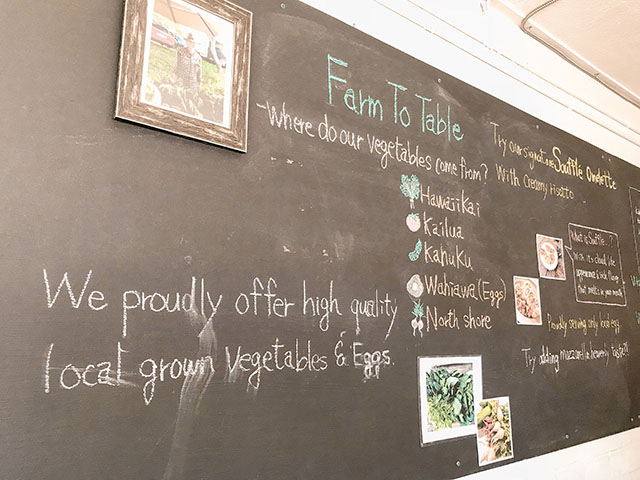 Farm To Table
-Where do our vegetables come from?
Hawaiikai
Kailua
Kahuku
Wahiawa (Eggs)
North shore
We proudly offer high quality
local grown Vegetables & Eggs.
Try our signature Souffle Omelette
With Creamy risotto
What is Souffle...?
With its cloud like
appearance & rich flavor
that melts in your mouth
Proudly serving only local egg
Try adding mozzarella heavenly taste!!